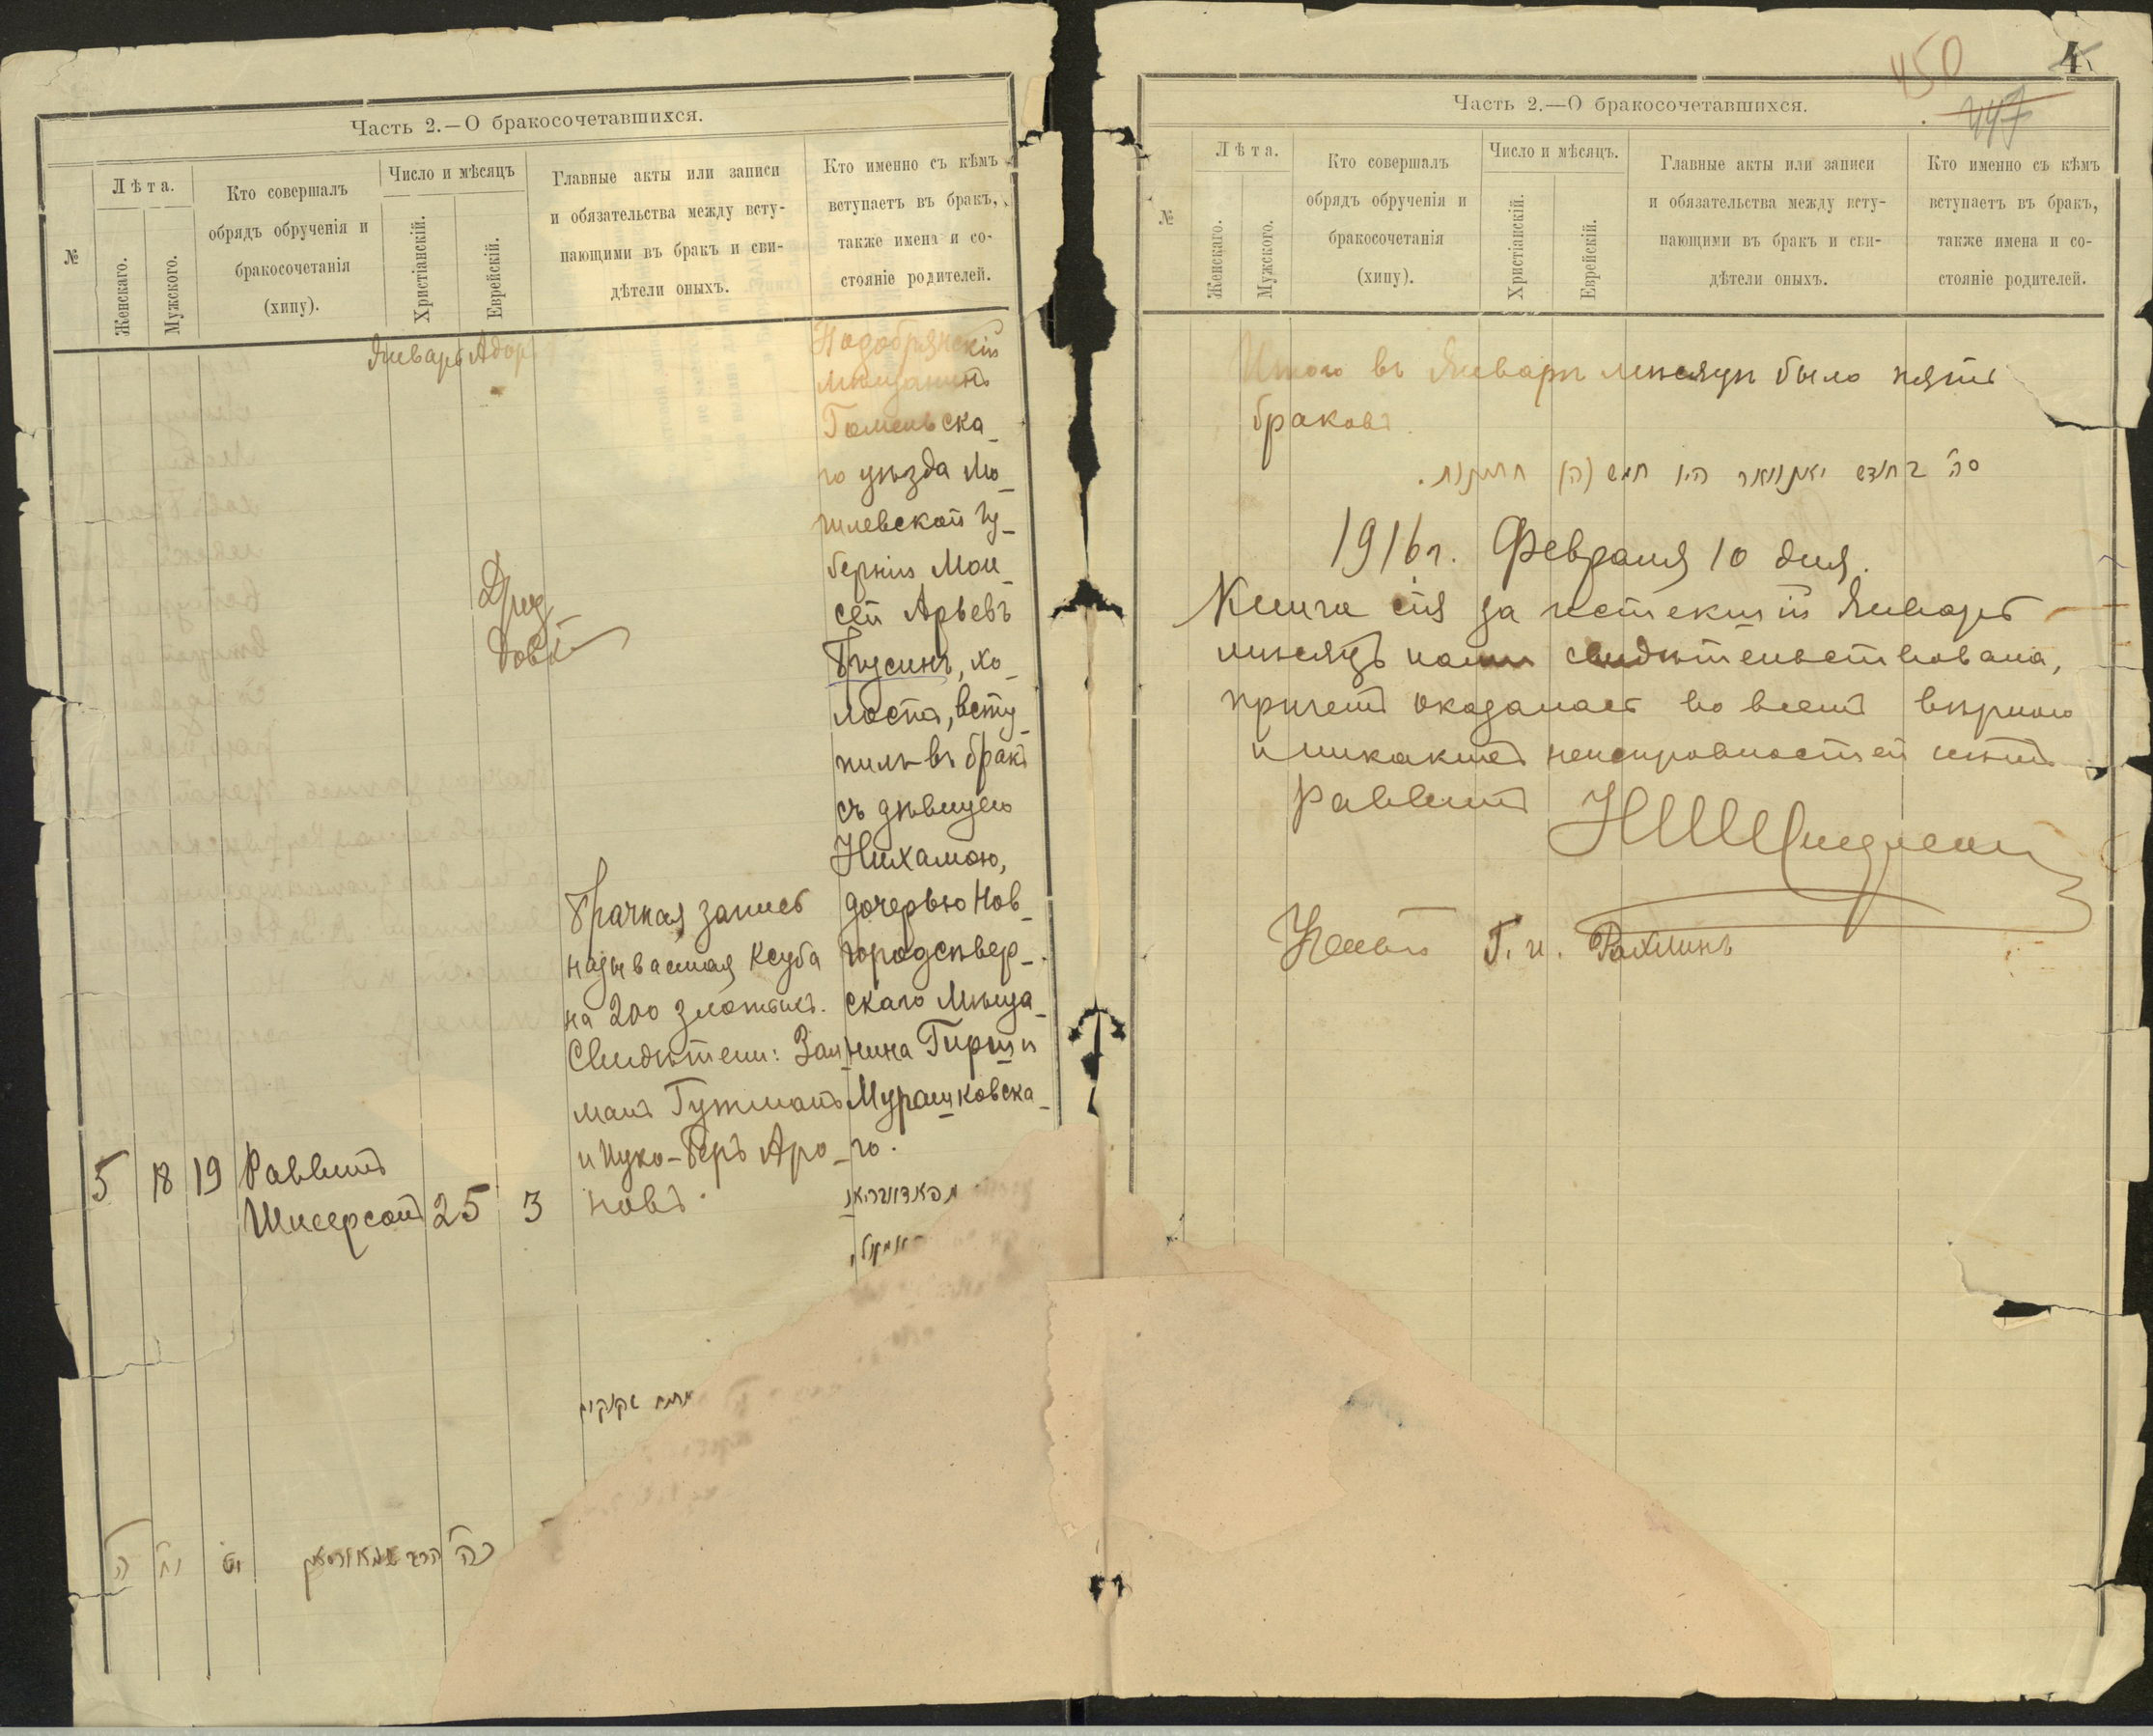 Часть 2.—О бракосочетавшихся.
№
Лѣта.
Женскаго.
Мужскаго.
Кто совершалъ
обрядъ обрученія и
бракосочетанія
(хипу).
Число и мѣсяцъ
Христіанскій.
Еврейскій.
Главные акты или записи
и обязательства между всту-
пающими въ бракъ и сви-
дѣтели оныхъ.
Кто именно съ кѣмъ
вступаетъ въ бракъ,
также имена и со-
стояніе родителей.
Январь Адоръ
5
18
19
Раввинъ
Шнеерсонъ
25
3
Брачная запись
называемая Ксуба
на 200 злотыхъ.
Свидѣтели: Зал
манъ Гутманъ
и Ицко-Беръ Аро_
новъ.
мѣщанинъ
Гомельска_
го уѣзда Мо_
гилевской Гу_
берніи Мои_
сей Арьевъ
Бусинъ, хо_
лостъ, всту_
пилъ въ бракъ
съ дѣвицею
Нихамою,
дочерью Нов_
городсѣвер_
скаго Мѣща_
нина Гирши
Мурашковска_
го.
ה
יח
יט
כה
4
450
447
Часть 2.—О бракосочетавшихся.
№
Лѣта.
Женскаго.
Мужскаго.
Кто совершалъ
обрядъ обрученія и
бракосочетанія
(хипу).
Число и мѣсяцъ.
Христіанскій.
Еврейскій.
Главные акты или записи
и обязательства между всту-
пающими въ бракъ и сви-
дѣтели оныхъ.
Кто именно съ кѣмъ
вступаетъ въ бракъ,
также имена и со-
стояніе родителей.
Итого въ Январѣ мѣсяцѣ было пять
браковъ.
סה״ בחודש יאנוואר היו חמש (ה) חתונות.
1916 г. Февраля 10 дня.
Книга сія за истекшій Январь
мѣсяцъ нами свидѣтельствована,
причемъ оказалась во всемъ вѣрною
и никакихъ неисправностей нѣтъ
Раввинъ
Ученый Г. И. Рахлинъ